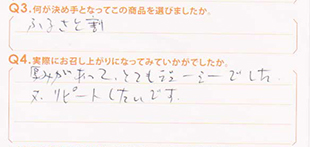 Q3.何が決め手となってこの商品を選びましたか。
ふるさと割
Q4.実際にお召し上がりになってみていかがでしたか。
厚みがあって、とてもジューシーでした。
又、リピートしたいです。